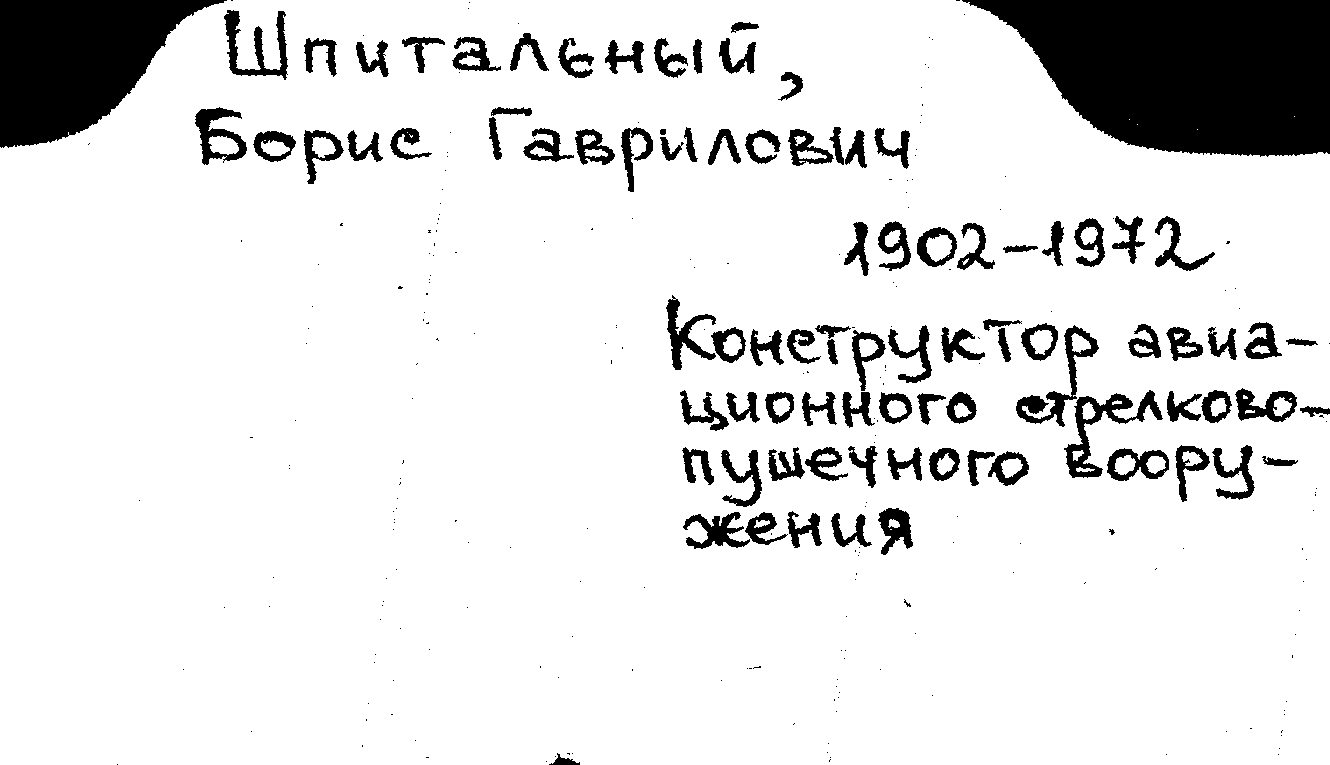 Шпитальный,
Борис Гаврилович
1902-1972
Конструктор авиа-
ционного стрелково-
пушечного воору-
жения